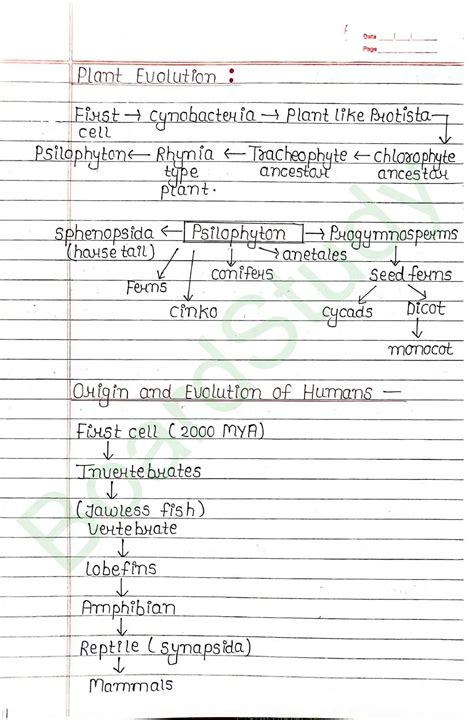 Date / /
Page
Plant Evolution :
First → cynobacteria → Plant like Protista
cell
Psilophyton ← Rhynia ← Tracheophyte ← chlorophyte
type ancestor ancestor
plant.
sphenopsida ← Psilophyton → Progymnosperms
(horse tail) → anetales
Ferms conifers Seed ferms
cinko cycads Dicot
monocot
Origin and Evolution of Humans —
First cell (2000 MYA)
Invertebrates
(Jawless fish)
Vertebrate
Lobefins
Amphibian
Reptile (synapsida)
Mammals
BoardStudy